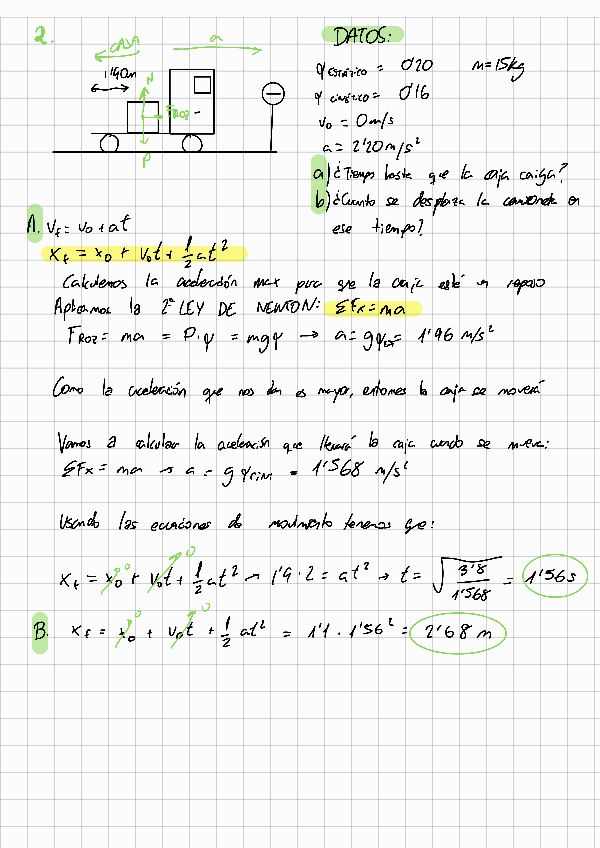 2.
CAJA
a
1'90m
N
FROZ
P
DATOS:
φ ESTÁTICO = 0'20 m=15kg
φ CINÉTICO = 0'16
v₀ = 0m/s
a = 2'20m/s²
a) ¿Tiempo hasta que la caja caiga?
b) ¿Cuanto se desplaza la camioneta en
ese tiempo?
A. Vf = v₀ + at
Xf = x₀ + v₀t + 1/2 at²
Calculemos la aceleración max para que la caja esté en reposo
Aplicamos la 2ª LEY DE NEWTON: ΣFx = ma
FROZ = ma = P·φ = mgφ → a = gφ = 1'96 m/s²
Como la aceleración que nos dan es mayor, entonces la caja se moverá
Vamos a calcular la aceleración que llevará la caja cuando se mueve:
ΣFx = ma → a = g φCIN = 1'568 m/s²
Usando las ecuaciones de movimiento tenemos que:
Xf = x₀ 0 + v₀t 0 + 1/2 at² → 1'9·2 = at² → t = √(3'8/1'568) = 1'56s
B. Xf = x₀ 0 + v₀t 0 + 1/2 at² = 1'1 · 1'56² = 2'68 m